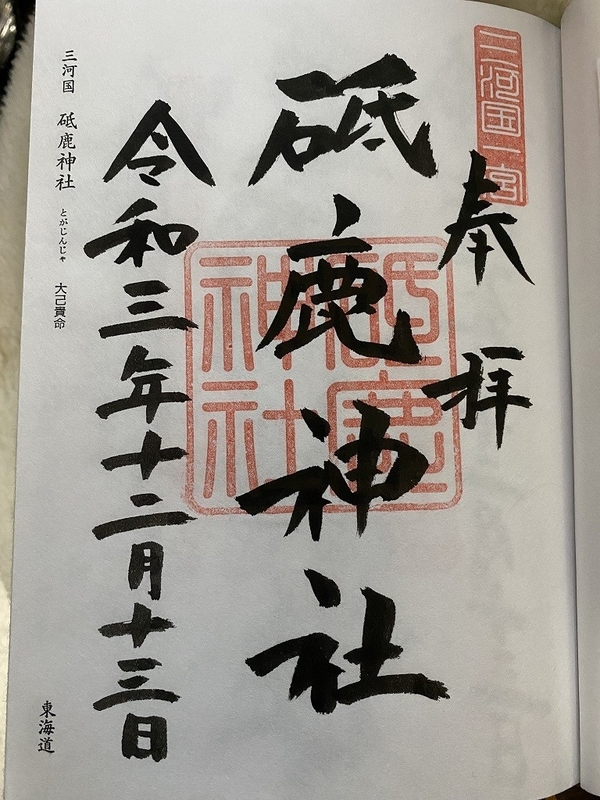 三河国一宮
奉拝
砥鹿神社
砥鹿神社
令和三年十二月十三日
三河国 砥鹿神社 とがじんじゃ 大己貴命
東海道